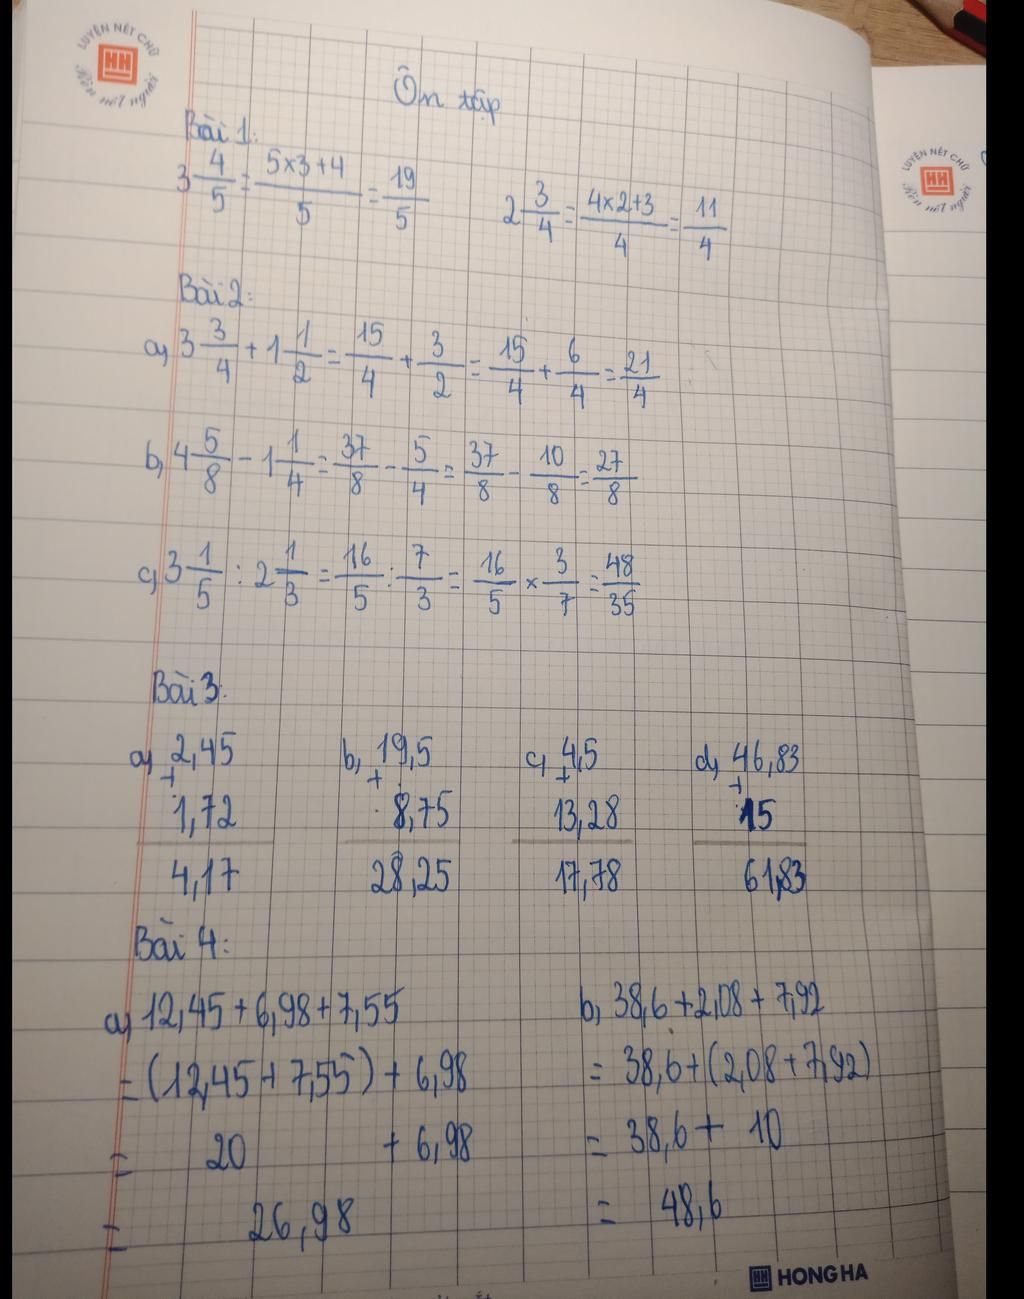 LUYỆN NÉT CHỮ
HH
Rèn nết người
Ôn tập
Bài 1:
3 4/5 = 5x3+4/5 = 19/5   2 3/4 = 4x2+3/4 = 11/4
Bài 2:
a, 3 3/4 + 1 1/2 = 15/4 + 3/2 = 15/4 + 6/4 = 21/4
b, 4 5/8 - 1 1/4 = 37/8 - 5/4 = 37/8 - 10/8 = 27/8
c, 3 1/5 : 2 1/3 = 16/5 : 7/3 = 16/5 x 3/7 = 48/35
Bài 3:
a, 2,45   b, 19,5   c, 4,5   d, 46,83
+   +   +   +
1,72   8,75   13,28   15
4,17   28,25   17,78   61,83
Bài 4:
a, 12,45 + 6,98 + 7,55   b, 38,6 + 2,08 + 7,92
= (12,45 + 7,55) + 6,98   = 38,6 + (2,08 + 7,92)
= 20 + 6,98   = 38,6 + 10
= 26,98   = 48,6
HH HONG HA
LUYỆN NÉT CHỮ
HH
Rèn nết người